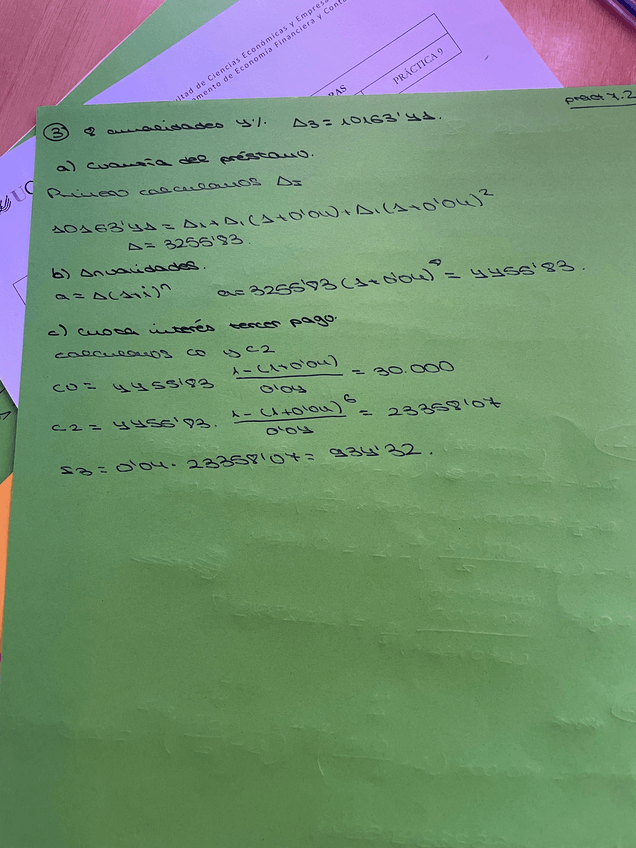 ltad de Ciencias Económicas y Empresa
amento de Economía Financiera y Cont
RAS
PRÁCTICA 9
UC
pract 7.2
③ 8 anualidades 4%. Δ3 = 10163'41.
a) Cuantía del préstamo.
Primero calculamos Δ=
10163'41 = Δ1 + Δ1 (1+0'04) + Δ1 (1+0'04)²
Δ = 3255'83.
b) Anualidades.
a = Δ(1+i)ⁿ a = 3255'83 (1+0'04)⁸ = 4455'83.
c) cuota interés tercer pago.
calculamos c0 y c2
c0 = 4455'83 1-(1+0'04) / 0'04 = 30.000
c2 = 4455'83. 1-(1+0'04)⁶ / 0'04 = 23358'07
s3 = 0'04 · 23358'07 = 934'32.